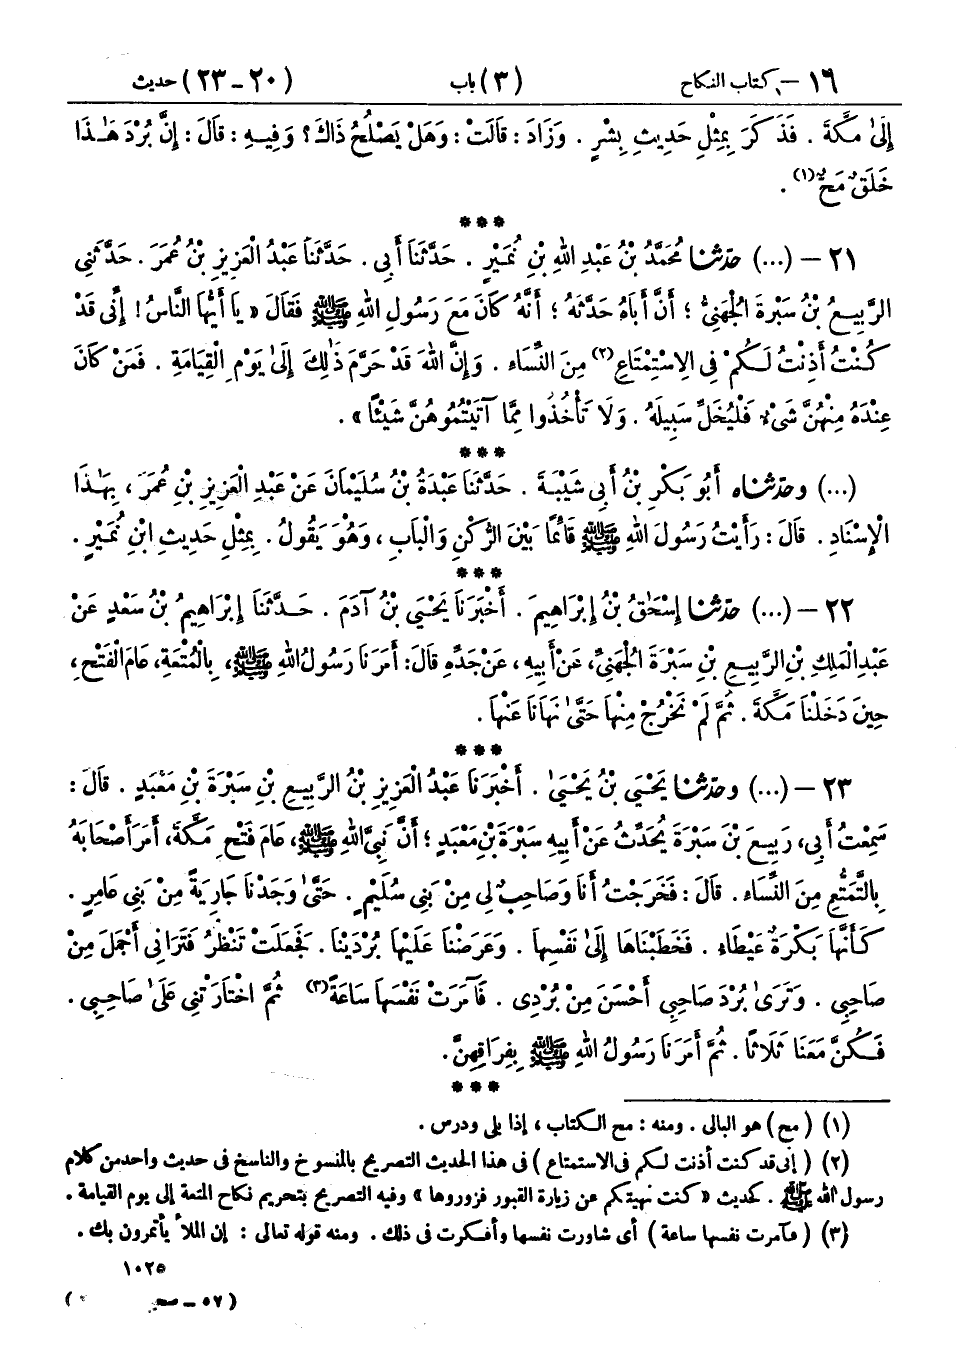 ١٦ – كتاب النكاح (٣) باب (٢٠ – ٢٣) حديث
إِلَىٰ مَكَّةَ . فَذَكَرَ بِمِثْلِ حَدِيثِ بِشْرٍ . وَزَادَ : قَالَتْ : وَهَلْ يَصْلُحُ ذَاكَ ؟ وَفِيهِ : قَالَ : إِنَّ بُرْدَ هَـٰذَا
خَلَقٌ مَحٌّ(١) .
***
٢١ – (...) حَدَّثَنَا مُحَمَّدُ بْنُ عَبْدِ اللهِ بْنِ نُمَيْرٍ . حَدَّثَنَا أَبِي . حَدَّثَنَا عَبْدُ الْعَزِيزِ بْنُ عُمَرَ . حَدَّثَنِي
الرَّبِيعُ بْنُ سَبْرَةَ الْجُهَنِيُّ ؛ أَنَّ أَبَاهُ حَدَّثَهُ ؛ أَنَّهُ كَانَ مَعَ رَسُولِ اللهِ ﷺ فَقَالَ « يَا أَيُّهَا النَّاسُ ! إِنِّي قَدْ
كُنْتُ أَذِنْتُ لَكُمْ فِي الِاسْتِمْتَاعِ(٢) مِنَ النِّسَاءِ . وَإِنَّ اللهَ قَدْ حَرَّمَ ذَٰلِكَ إِلَىٰ يَوْمِ الْقِيَامَةِ . فَمَنْ كَانَ
عِنْدَهُ مِنْهُنَّ شَيْءٌ فَلْيُخَلِّ سَبِيلَهُ . وَلَا تَأْخُذُوا مِمَّا آتَيْتُمُوهُنَّ شَيْئًا » .
***
(...) وحَدَّثَنَاه أَبُو بَكْرِ بْنُ أَبِي شَيْبَةَ . حَدَّثَنَا عَبْدَةُ بْنُ سُلَيْمَانَ عَنْ عَبْدِ الْعَزِيزِ بْنِ عُمَرَ ، بِهَـٰذَا
الْإِسْنَادِ . قَالَ : رَأَيْتُ رَسُولَ اللهِ ﷺ قَائِمًا بَيْنَ الرُّكْنِ وَالْبَابِ ، وَهُوَ يَقُولُ . بِمِثْلِ حَدِيثِ ابْنِ نُمَيْرٍ .
***
٢٢ – (...) حَدَّثَنَا إِسْحَٰقُ بْنُ إِبْرَاهِيمَ . أَخْبَرَنَا يَحْيَى بْنُ آدَمَ . حَدَّثَنَا إِبْرَاهِيمُ بْنُ سَعْدٍ عَنْ
عَبْدِ الْمَلِكِ بْنِ الرَّبِيعِ بْنِ سَبْرَةَ الْجُهَنِيِّ ، عَنْ أَبِيهِ ، عَنْ جَدِّهِ قَالَ : أَمَرَنَا رَسُولُ اللهِ ﷺ ، بِالْمُتْعَةِ ، عَامَ الْفَتْحِ ،
حِينَ دَخَلْنَا مَكَّةَ . ثُمَّ لَمْ نَخْرُجْ مِنْهَا حَتَّىٰ نَهَانَا عَنْهَا .
***
٢٣ – (...) وحَدَّثَنَا يَحْيَى بْنُ يَحْيَىٰ . أَخْبَرَنَا عَبْدُ الْعَزِيزِ بْنُ الرَّبِيعِ بْنِ سَبْرَةَ بْنِ مَعْبَدٍ . قَالَ :
سَمِعْتُ أَبِي ، رَبِيعَ بْنَ سَبْرَةَ يُحَدِّثُ عَنْ أَبِيهِ سَبْرَةَ بْنِ مَعْبَدٍ ؛ أَنَّ نَبِيَّ اللهِ ﷺ ، عَامَ فَتْحِ مَكَّةَ ، أَمَرَ أَصْحَابَهُ
بِالتَّمَتُّعِ مِنَ النِّسَاءِ . قَالَ : فَخَرَجْتُ أَنَا وَصَاحِبٌ لِي مِنْ بَنِي سُلَيْمٍ . حَتَّىٰ وَجَدْنَا جَارِيَةً مِنْ بَنِي عَامِرٍ .
كَأَنَّهَا بَكْرَةٌ عَيْطَاءُ . فَخَطَبْنَاهَا إِلَىٰ نَفْسِهَا . وَعَرَضْنَا عَلَيْهَا بُرْدَيْنَا . فَجَعَلَتْ تَنْظُرُ فَتَرَانِي أَجْمَلَ مِنْ
صَاحِبِي . وَتَرَىٰ بُرْدَ صَاحِبِي أَحْسَنَ مِنْ بُرْدِي . فَآمَرَتْ نَفْسَهَا سَاعَةً(٣) ثُمَّ اخْتَارَتْنِي عَلَىٰ صَاحِبِي .
فَكُنَّ مَعَنَا ثَلَاثًا . ثُمَّ أَمَرَنَا رَسُولُ اللهِ ﷺ بِفِرَاقِهِنَّ .
***
(١) ( مح ) هو البالى . ومنه : مح الكتاب ، إذا بلى ودرس .
(٢) ( إنى قد كنت أذنت لكم فى الاستمتاع ) فى هذا الحديث التصريح بالمنسوخ والناسخ فى حديث واحد من كلام
رسول الله ﷺ . كحديث « كنت نهيتكم عن زيارة القبور فزوروها » وفيه التصريح بتحريم نكاح المتعة إلى يوم القيامة .
(٣) ( فآمرت نفسها ساعة ) أى شاورت نفسها وأفكرت فى ذلك . ومنه قوله تعالى : إن الملأ يأتمرون بك .
١٠٢٥
( ٥٧ – صحيح )